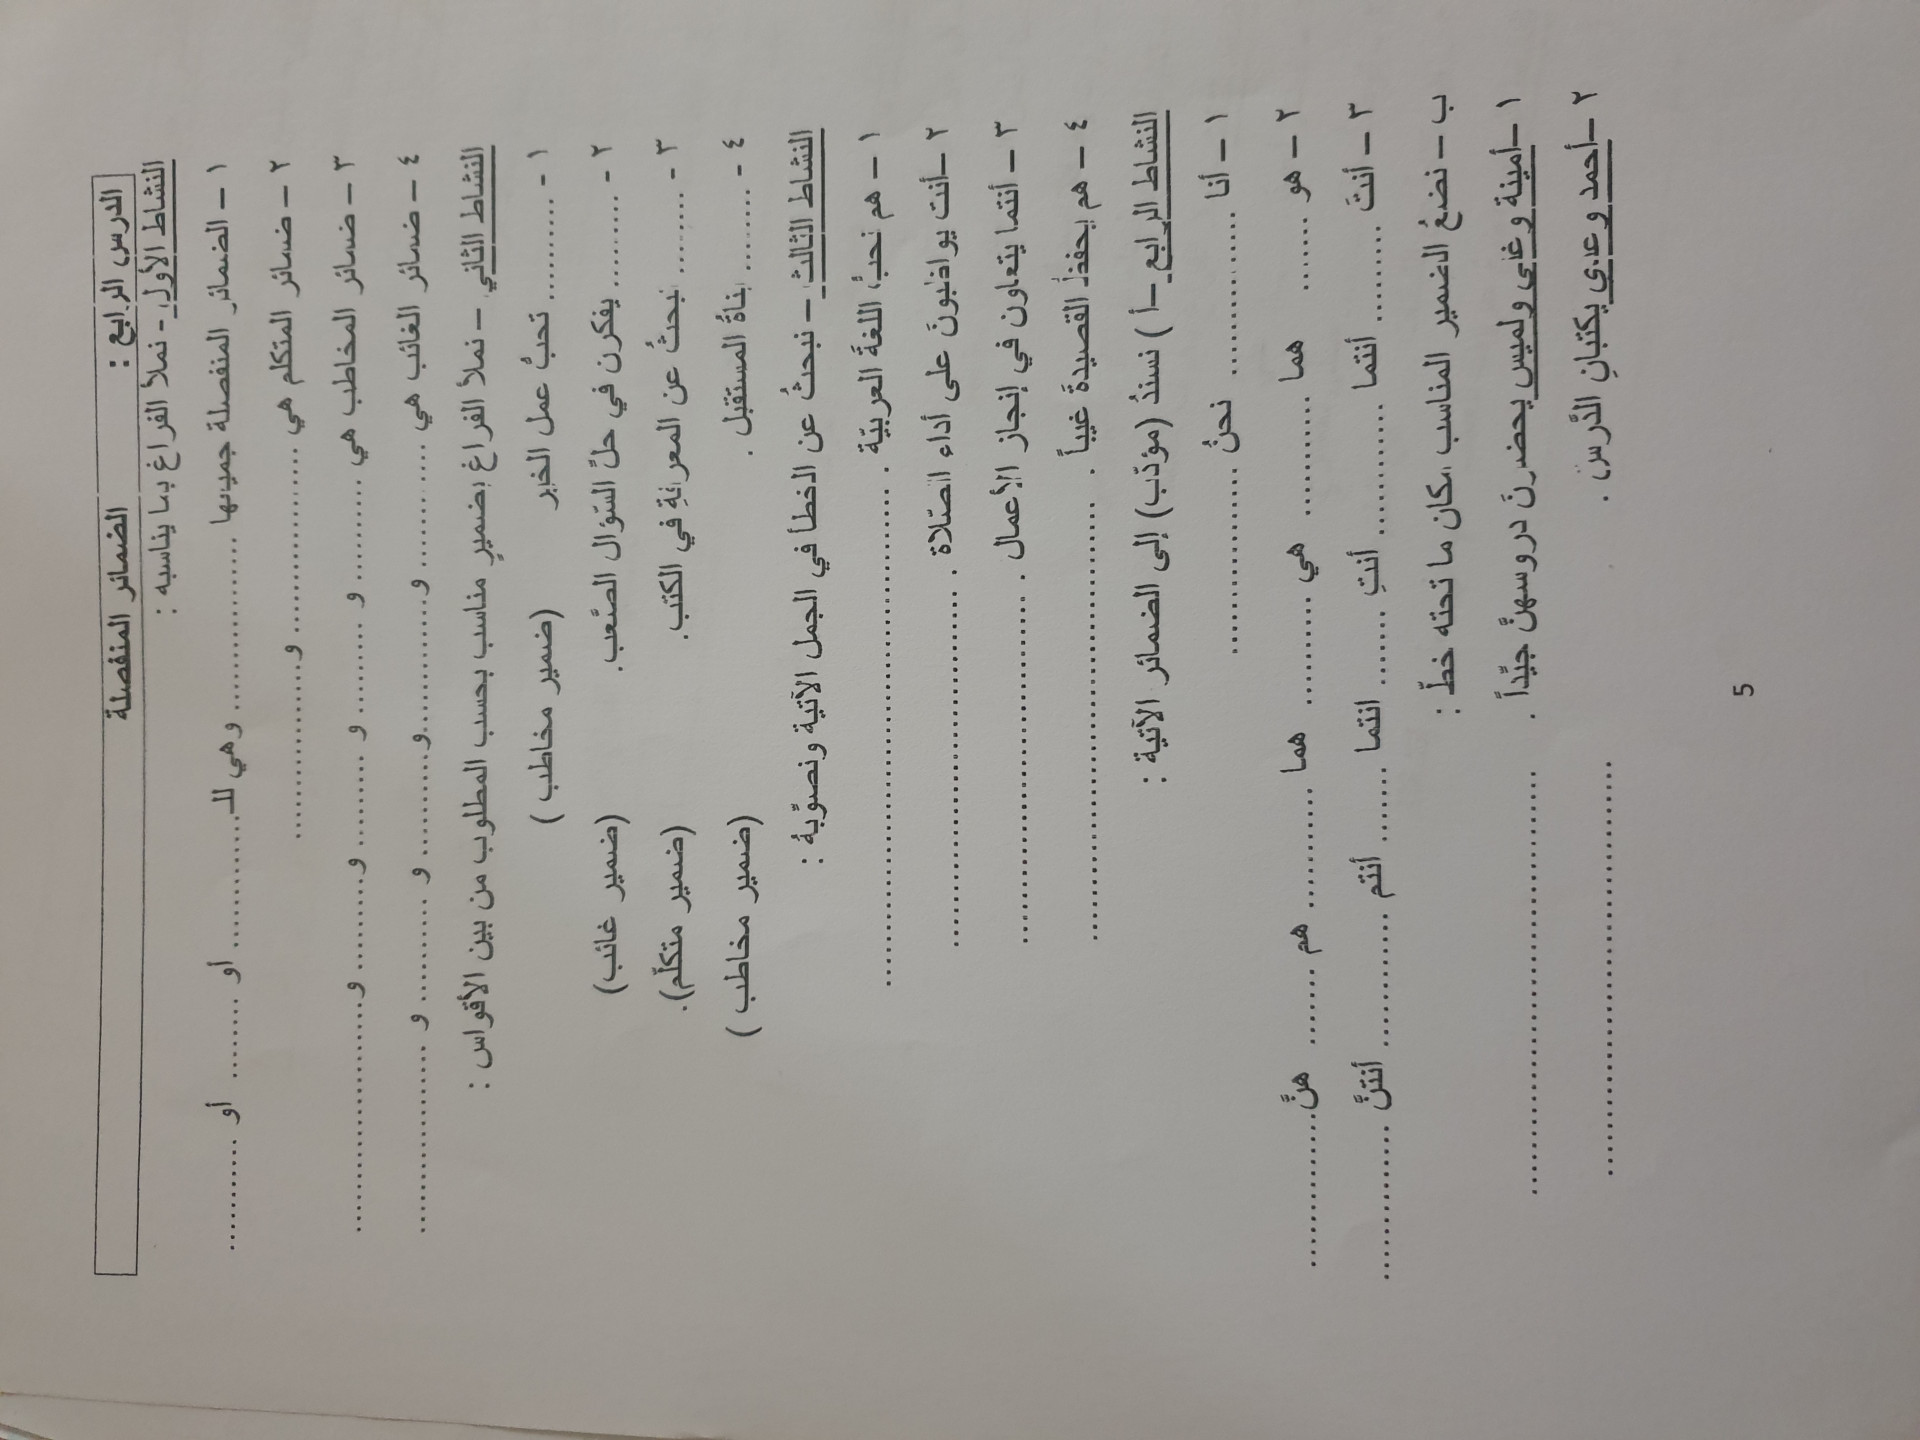 الدرس الرابع : الضمائر المنفصلة
النشاط الأول - نملأ الفراغ بما يناسبه :
١ – الضمائر المنفصلة جميعها .................. وهي للـ............. أو ........ أو ..........
٢ – ضمائر المتكلم هي .................. و..................
٣ – ضمائر المخاطب هي .......... و .......... و .......... و.......... و..................
٤ – ضمائر الغائب هي .......... و............و............ و .......... و ..................
النشاط الثاني – نملأ الفراغ بضميرٍ مناسب بحسب المطلوب من بين الأقواس :
١ - .......... تحبُّ عمل الخير (ضمير مخاطب )
٢ - .......... يفكرن في حلّ السّؤال الصّعب. (ضمير غائب)
٣ - .......... نبحثُ عن المعرفةِ في الكتب. (ضمير متكلّم).
٤ - .......... بناةُ المستقبل . (ضمير مخاطب )
النشاط الثالث – نبحثُ عن الخطأ في الجمل الآتية ونصوّبهُ :
١ – هم نحبُّ اللغةَ العربيّة . ..................................................
٢ –أنت يواظبونَ على أداء الصّلاة . ........................................
٣ – أنتما يتعاون في إنجاز الأعمال . ........................................
٤ – هم يحفظُ القصيدةَ غيباً . ..................................................
النشاط الرابع –أ ) نسندُ (مؤدّب) إلى الضمائر الآتية :
١ – أنا .................. نحنُ ..................
٢ – هو ........ هما ............ هي ............ هما ............ هم ........ هنَّ..................
٣ – أنتَ .......... أنتما .............. أنتِ ........ انتما ........ أنتم .............. أنتنَّ ..................
ب – نضعُ الضمير المناسب مكان ما تحته خطّ :
١ –أمينة وغنى ولميس يحضرنَ دروسهنَّ جيّداً . ..................................................
٢ –أحمد وعدي يكتبانِ الدَّرسَ . ..................................................
5